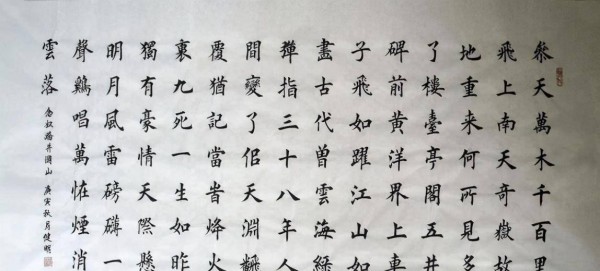 叅天萬木千百里
飛上南天奇嶽故
地重來何所見多
了樓臺亭閣五井
碑前黄洋界上車
子飛如躍江山如
畫古代曾雲海緑
彈指三十八年人
間變了佀天淵飜
覆猶記當旹烽火
裏九死一生如昨
獨有豪情天際懸
明月風雷磅礴一
聲鷄唱萬恠煙消
雲落
念奴嬌井岡山 庚寅秋月健明